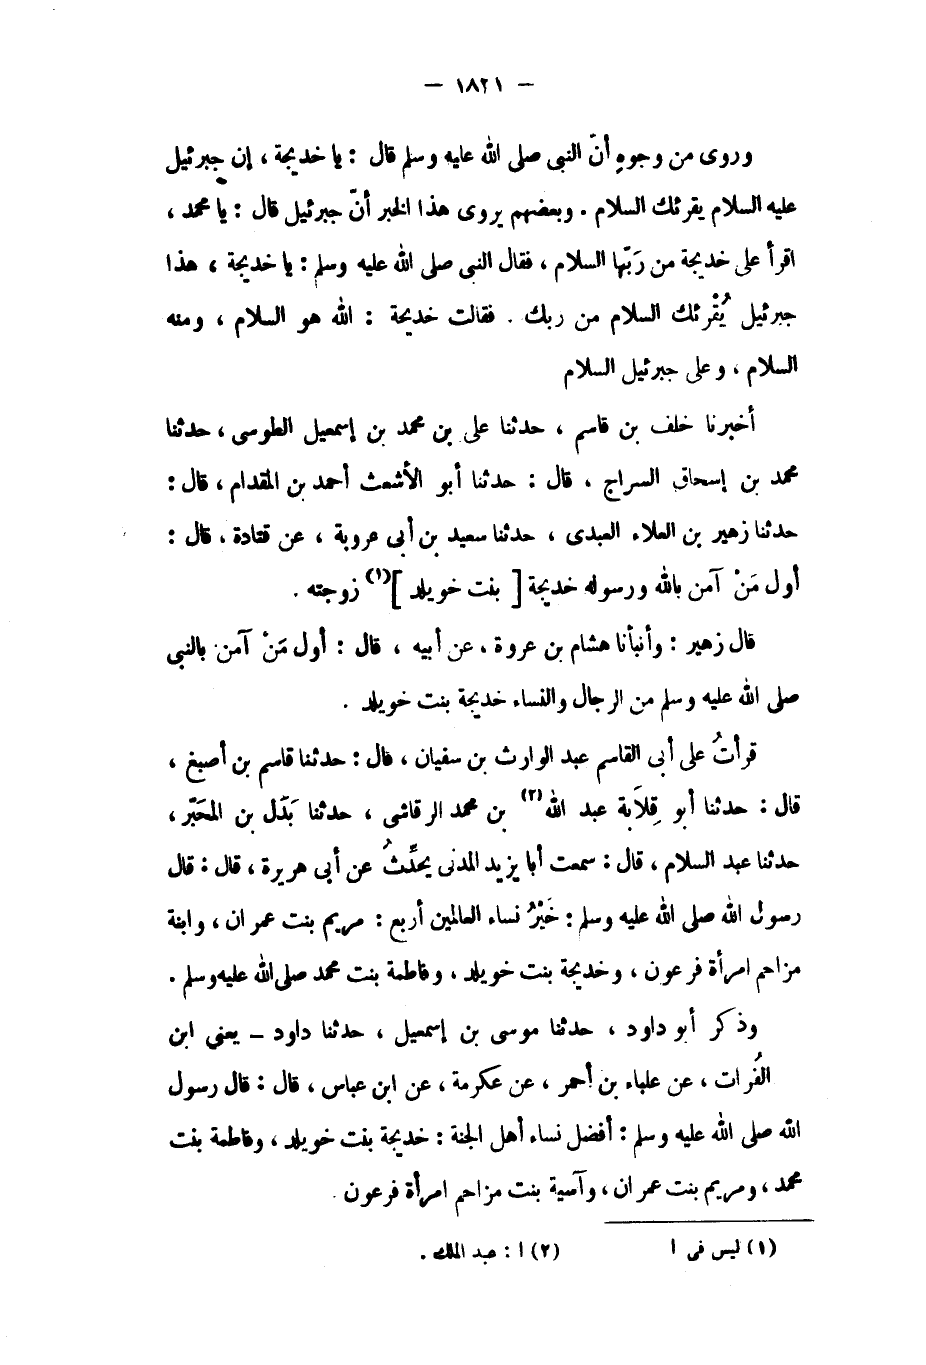 — ١٨٢١ —
وروى من وجوهٍ أنّ النبى صلى الله عليه وسلم قال : يا خديجة ، إن جبرئيل
عليه السلام يقرئك السلام . وبعضهم يروى هذا الخبر أنّ جبرئيل قال : يا محمد ،
اقرأ على خديجة من رَبّها السلام ، فقال النبى صلى الله عليه وسلم : يا خديجة ، هذا
جبرئيل يُقْرئك السلام من ربك . فقالت خديجة : الله هو السلام ، ومنه
السلام ، وعلى جبرئيل السلام
أخبرنا خلف بن قاسم ، حدثنا على بن محمد بن إسمعيل الطوسى ، حدثنا
محمد بن إسحاق السراج ، قال : حدثنا أبو الأشعث أحمد بن المقدام ، قال :
حدثنا زهير بن العلاء العبدى ، حدثنا سعيد بن أبى عروبة ، عن قتادة ، قال :
أول مَنْ آمن بالله ورسوله خديجة [ بنت خويلد ](١) زوجته .
قال زهير : وأنبأنا هشام بن عروة ، عن أبيه ، قال : أول مَنْ آمن بالنبى
صلى الله عليه وسلم من الرجال والنساء خديجة بنت خويلد .
قرأتُ على أبى القاسم عبد الوارث بن سفيان ، قال : حدثنا قاسم بن أصبغ ،
قال : حدثنا أبو قِلَابة عبد الله(٢) بن محمد الرقاشى ، حدثنا بَدَل بن المحَبّر ،
حدثنا عبد السلام ، قال : سمعت أبا يزيد المدنى يحدِّثُ عن أبى هريرة ، قال : قال
رسول الله صلى الله عليه وسلم : خَيْرُ نساء العالمين أربع : مريم بنت عمران ، وابنة
مزاحم امرأة فرعون ، وخديجة بنت خويلد ، وفاطمة بنت محمد صلى الله عليه وسلم .
وذكر أبو داود ، حدثنا موسى بن إسمعيل ، حدثنا داود – يعنى ابن
الفُرات ، عن علباء بن أحمر ، عن عكرمة ، عن ابن عباس ، قال : قال رسول
الله صلى الله عليه وسلم : أفضل نساء أهل الجنة : خديجة بنت خويلد ، وفاطمة بنت
محمد ، ومريم بنت عمران ، وآسية بنت مزاحم امرأة فرعون .
(١) ليس فى ا (٢) ا : عبد الملك .